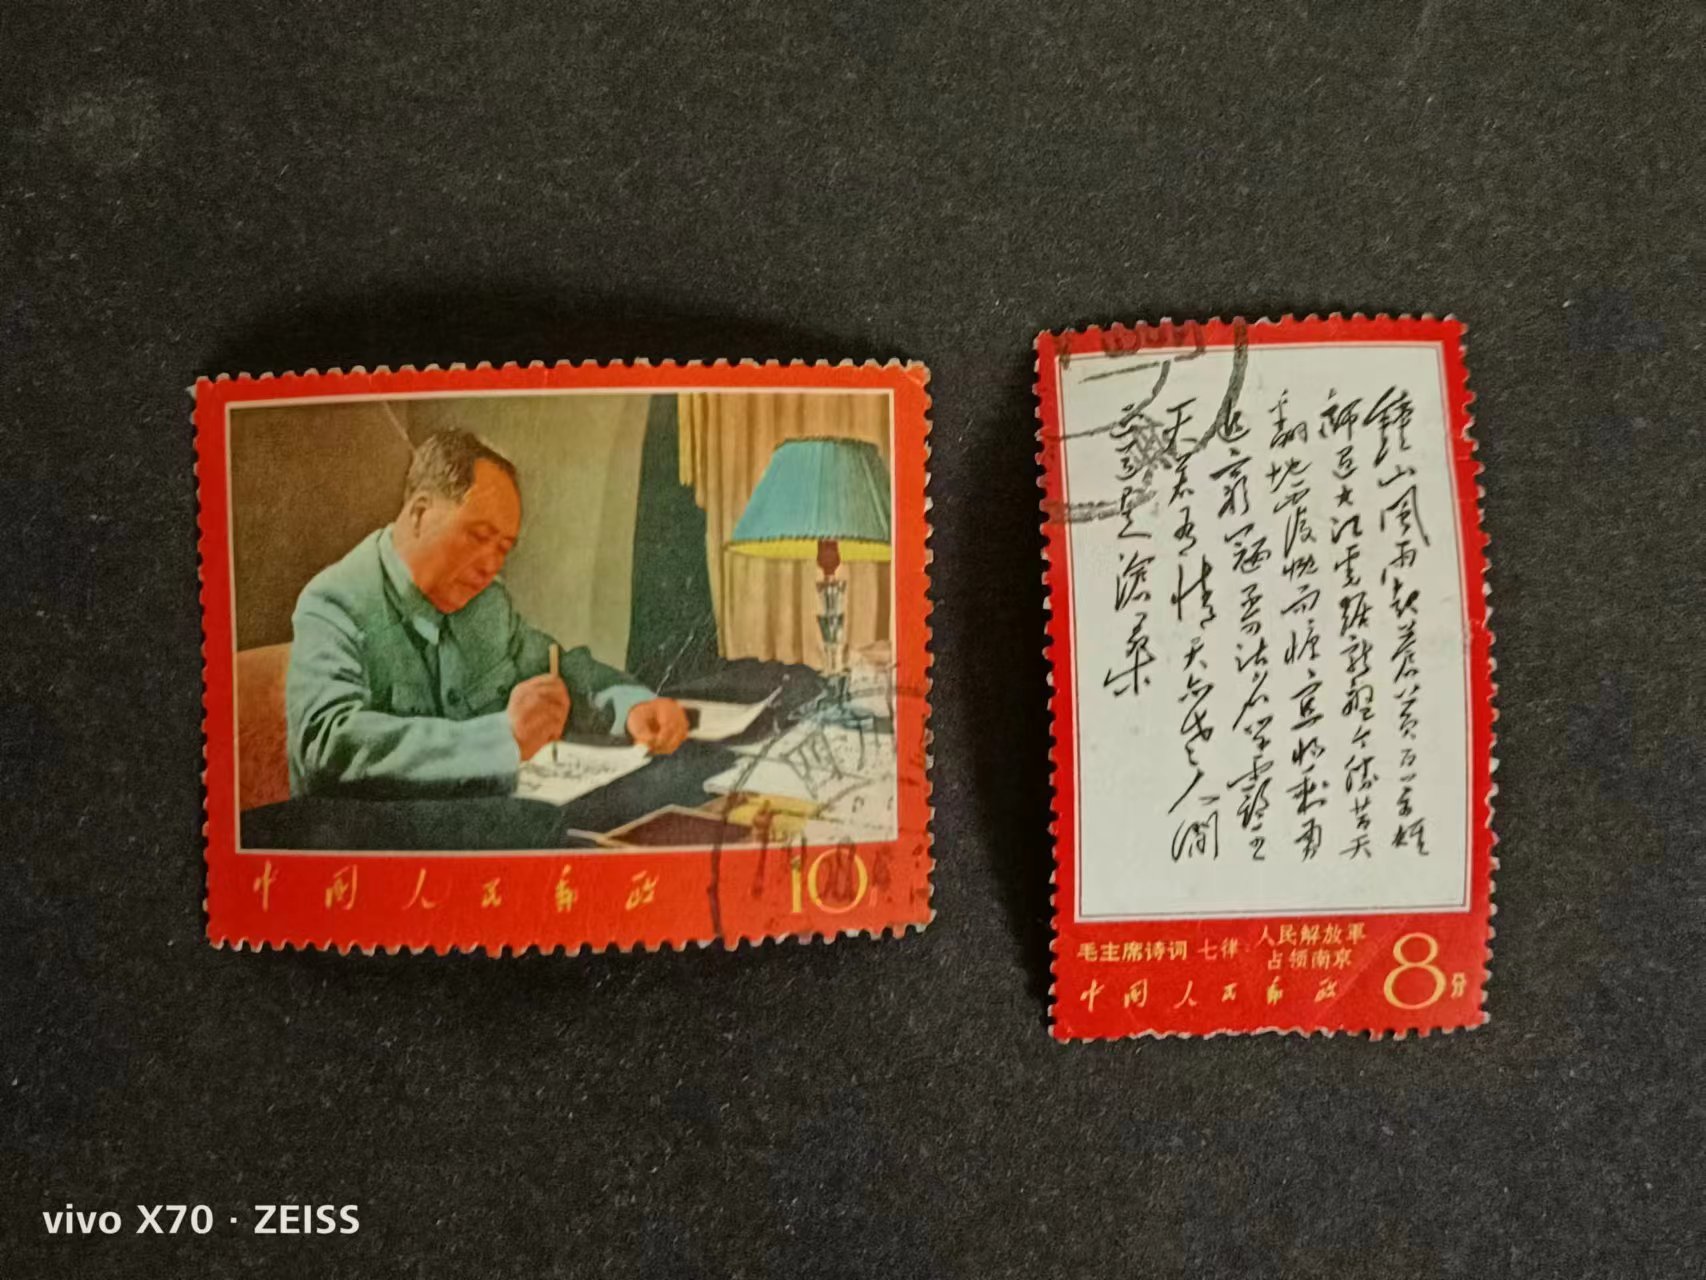 中国人民邮政 10
鐘山風雨起蒼黃百万雄
師过大江虎踞龍盤今勝昔天
翻地覆慨而慷宜将剩勇
追窮寇不可沽名學霸王
天若有情天亦老人间
正道是滄桑
毛主席诗词 七律 人民解放軍
占领南京
中国人民邮政 8分
vivo X70 · ZEISS